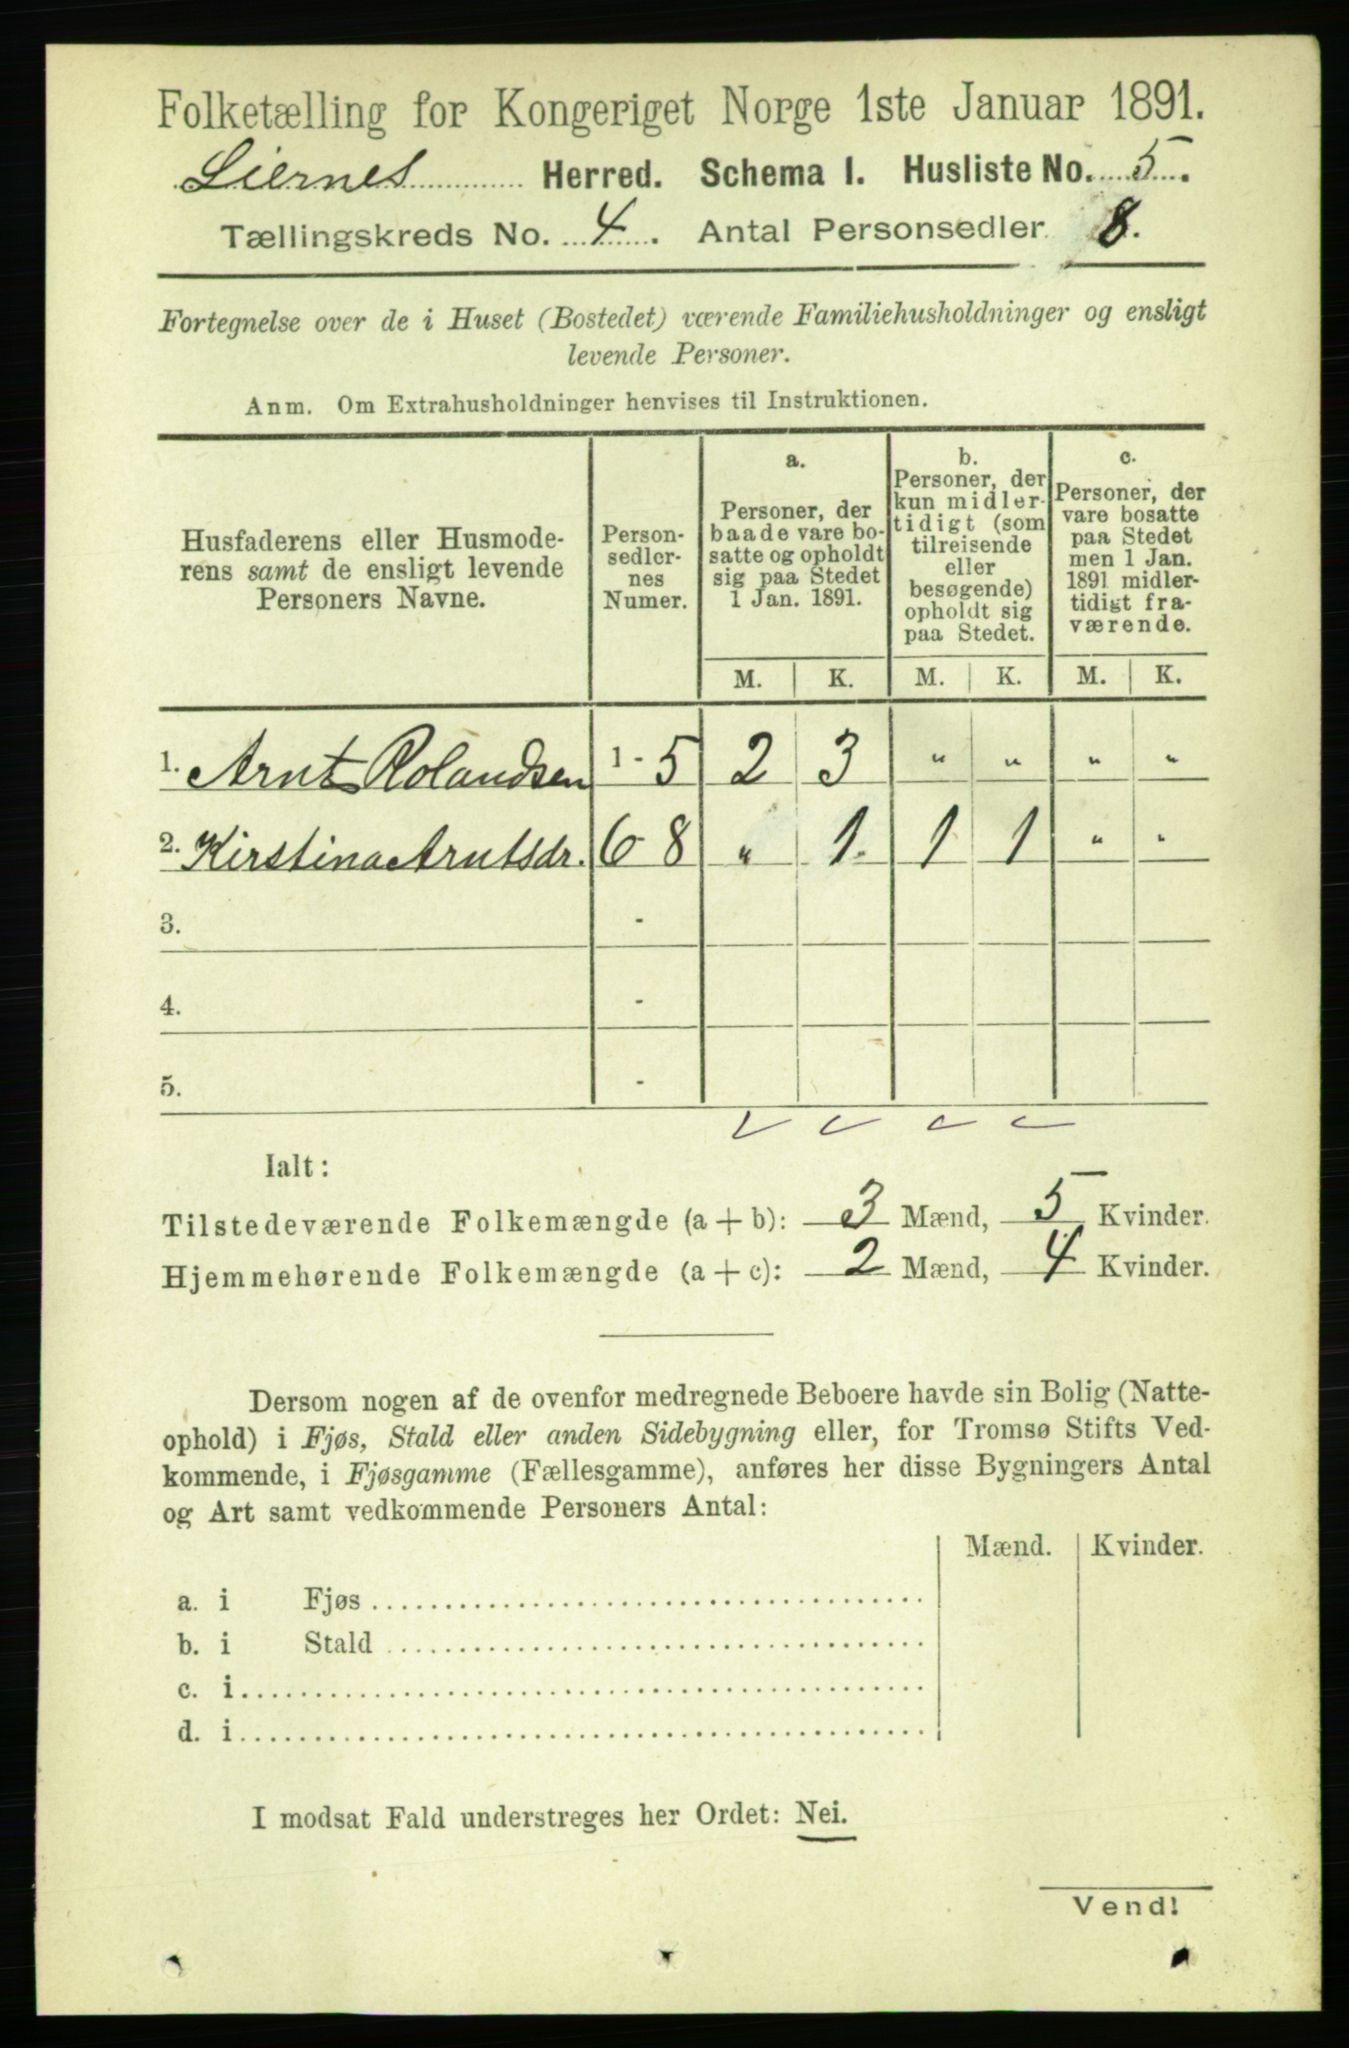 Folketælling for Kongeriget Norge 1ste Januar 1891.
Liernes Herred. Schema I. Husliste No. 5.
Tællingskreds No. 4. Antal Personsedler 8.
Fortegnelse over de i Huset (Bostedet) værende Familiehusholdninger og ensligt
levende Personer.
Anm. Om Extrahusholdninger henvises til Instruktionen.
Husfaderens eller Husmode-
rens samt de ensligt levende
Personers Navne.
Person-
sedler-
nes
Numer.
a.
Personer, der
baade vare bo-
satte og opholdt
sig paa Stedet
1 Jan. 1891.
b.
Personer, der
kun midler-
tidigt (som
tilreisende
eller
besøgende)
opholdt sig
paa Stedet.
c.
Personer, der
vare bosatte
paa Stedet
men 1 Jan.
1891 midler-
tidigt fra-
værende.
M. K. M. K. M. K.
1. Arnt Rolandsen 1 - 5 2 3 " " " "
2. Kirstina Arntsdr. 6 - 8 " 1. 1 1 " "
3. -
4. -
5. -
Ialt:
Tilstedeværende Folkemængde (a + b): 3 Mænd, 5 Kvinder.
Hjemmehørende Folkemængde (a + c): 2 Mænd, 4 Kvinder.
Dersom nogen af de ovenfor medregnede Beboere havde sin Bolig (Natte-
ophold) i Fjøs, Stald eller anden Sidebygning eller, for Tromsø Stifts Ved-
kommende, i Fjøsgamme (Fællesgamme), anføres her disse Bygningers Antal
og Art samt vedkommende Personers Antal:
Mænd. Kvinder.
a. i Fjøs
b. i Stald
c. i
d. i
I modsat Fald understreges her Ordet: Nei.
Vend!